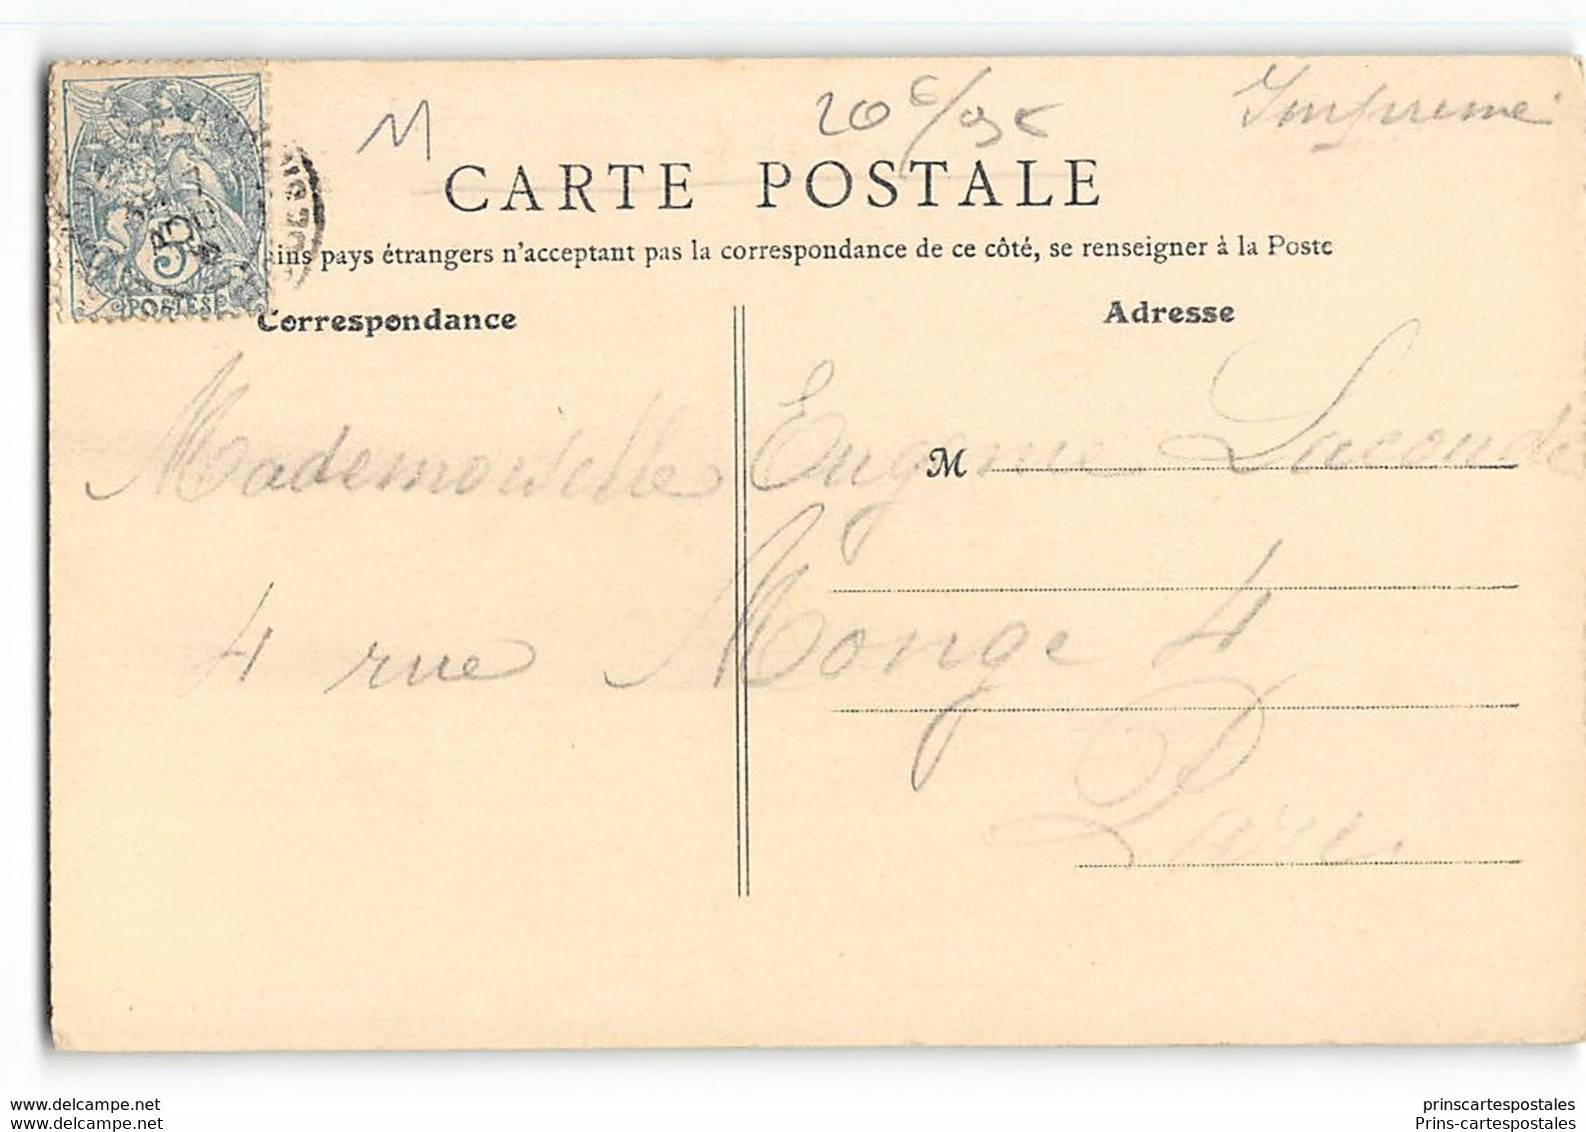 M
20
Imprimé
CARTE POSTALE
ains pays étrangers n'acceptant pas la correspondance de ce côté, se renseigner à la Poste
5
POSTES
Correspondance
Adresse
M
Mademoiselle Eugenie
4 rue Monge 4
Paris
www.delcampe.net
www.delcampe.net
prinscartespostales
Prins-cartespostales